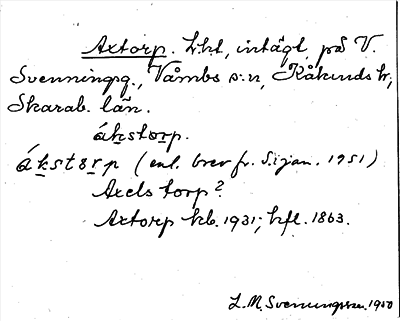 Axtorp. Lht, intägt på V.
Svenningsg., Våmbs s:n, Kåkinds hr,
Skarab. län.
ákstorp.
ákstorp (enl. brev fr. 5 jan. 1951)
Axelstorp?
Axtorp kb. 1931; hfl. 1863.
L. M. Svenungsson. 1950